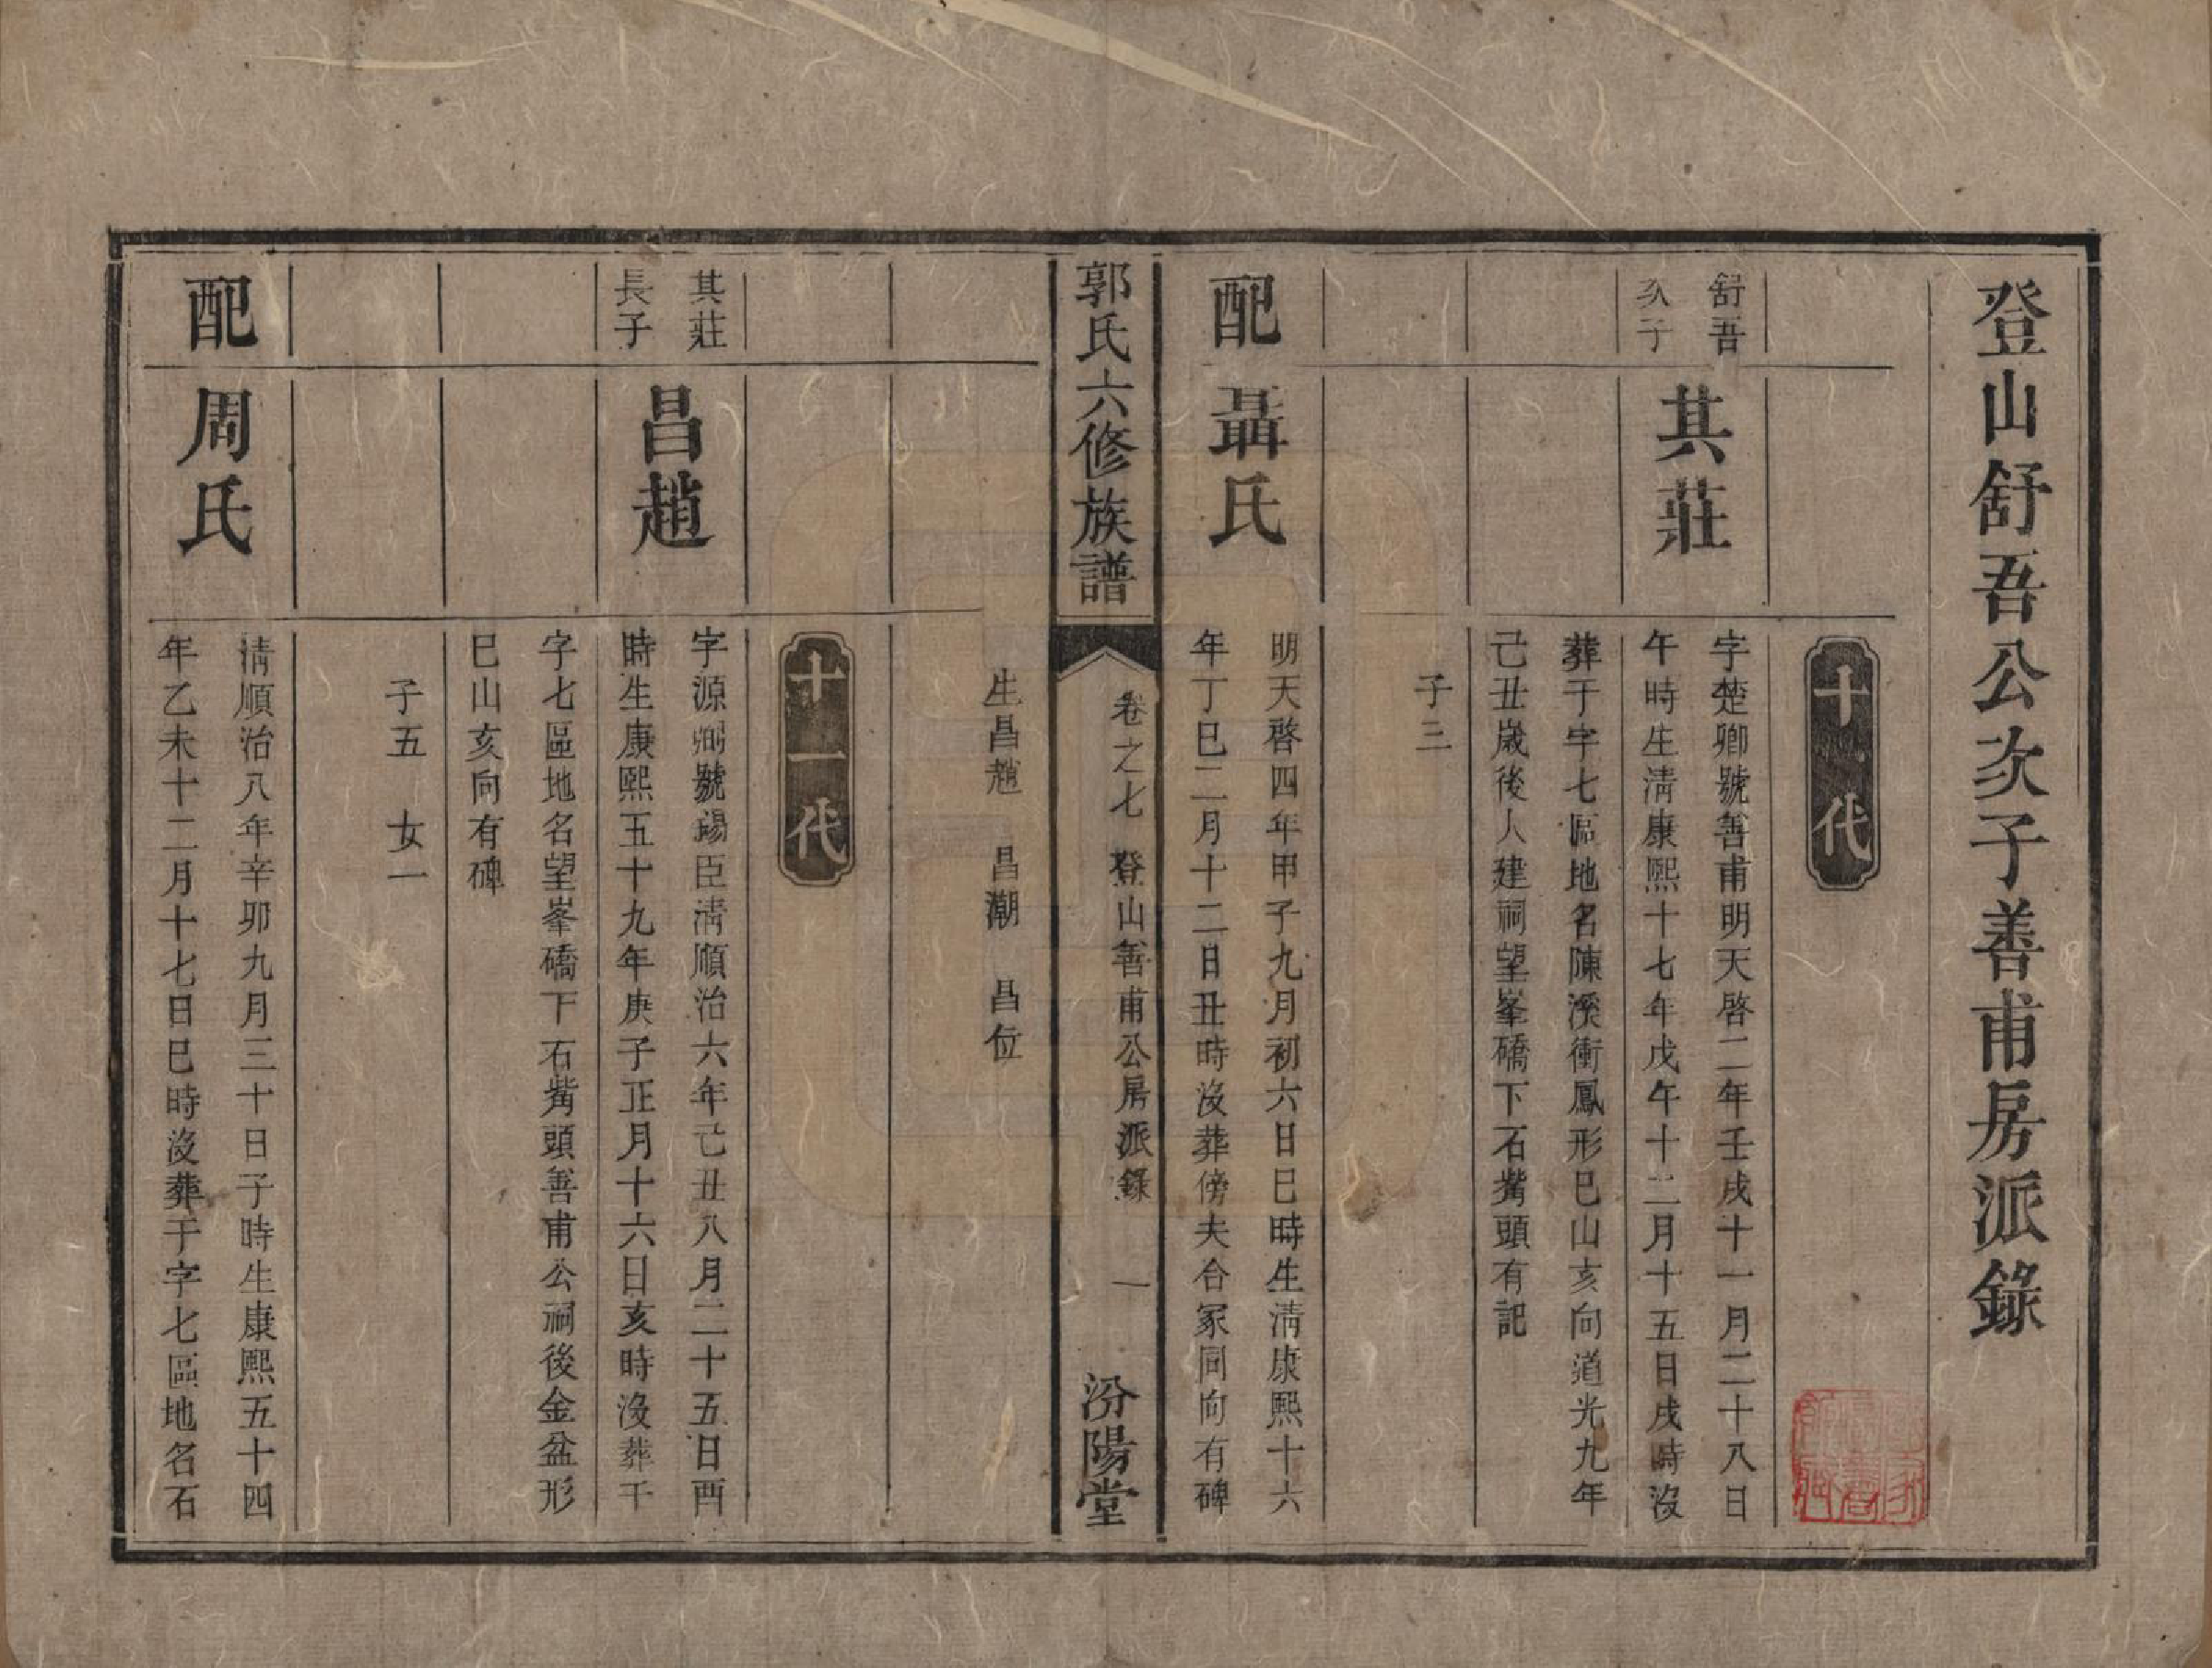 登山舒吾公次子善甫房派錄
十代
舒吾
次子
其莊
字楚卿號善甫明天啓二年壬戌十一月二十八日
午時生淸康熙十七年戊午十二月十五日戌時沒
葬于字七區地名陳溪衝鳳形巳山亥向道光九年
己丑歲後人建祠望峯礄下石觜頭有記
子三
配
聶氏
明天啓四年甲子九月初六日巳時生淸康熙十六
年丁巳二月十二日丑時沒葬傍夫合冢同向有碑
郭氏六修族譜
卷之七
登山善甫公房派錄
一
汾陽堂
生昌趙 昌潮 昌位
十一代
其莊
長子
昌趙
字源卿號錫臣淸順治六年己丑八月二十五日酉
時生康熙五十九年庚子正月十六日亥時沒葬干
字七區地名望峯礄下石觜頭善甫公祠後金盆形
巳山亥向有碑
子五 女一
配
周氏
淸順治八年辛卯九月三十日子時生康熙五十四
年乙未十二月十七日巳時沒葬干字七區地名石